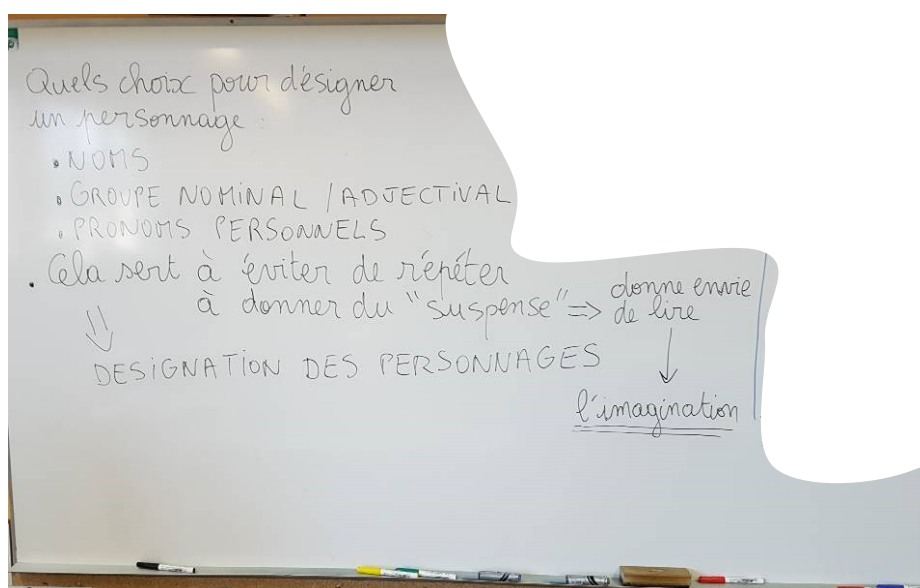 Quels choix pour désigner
un personnage :
• NOMS
• GROUPE NOMINAL / ADJECTIVAL
• PRONOMS PERSONNELS
• Cela sert à éviter de répéter
à donner du "suspense" => donne envie
de lire
DESIGNATION DES PERSONNAGES
l'imagination